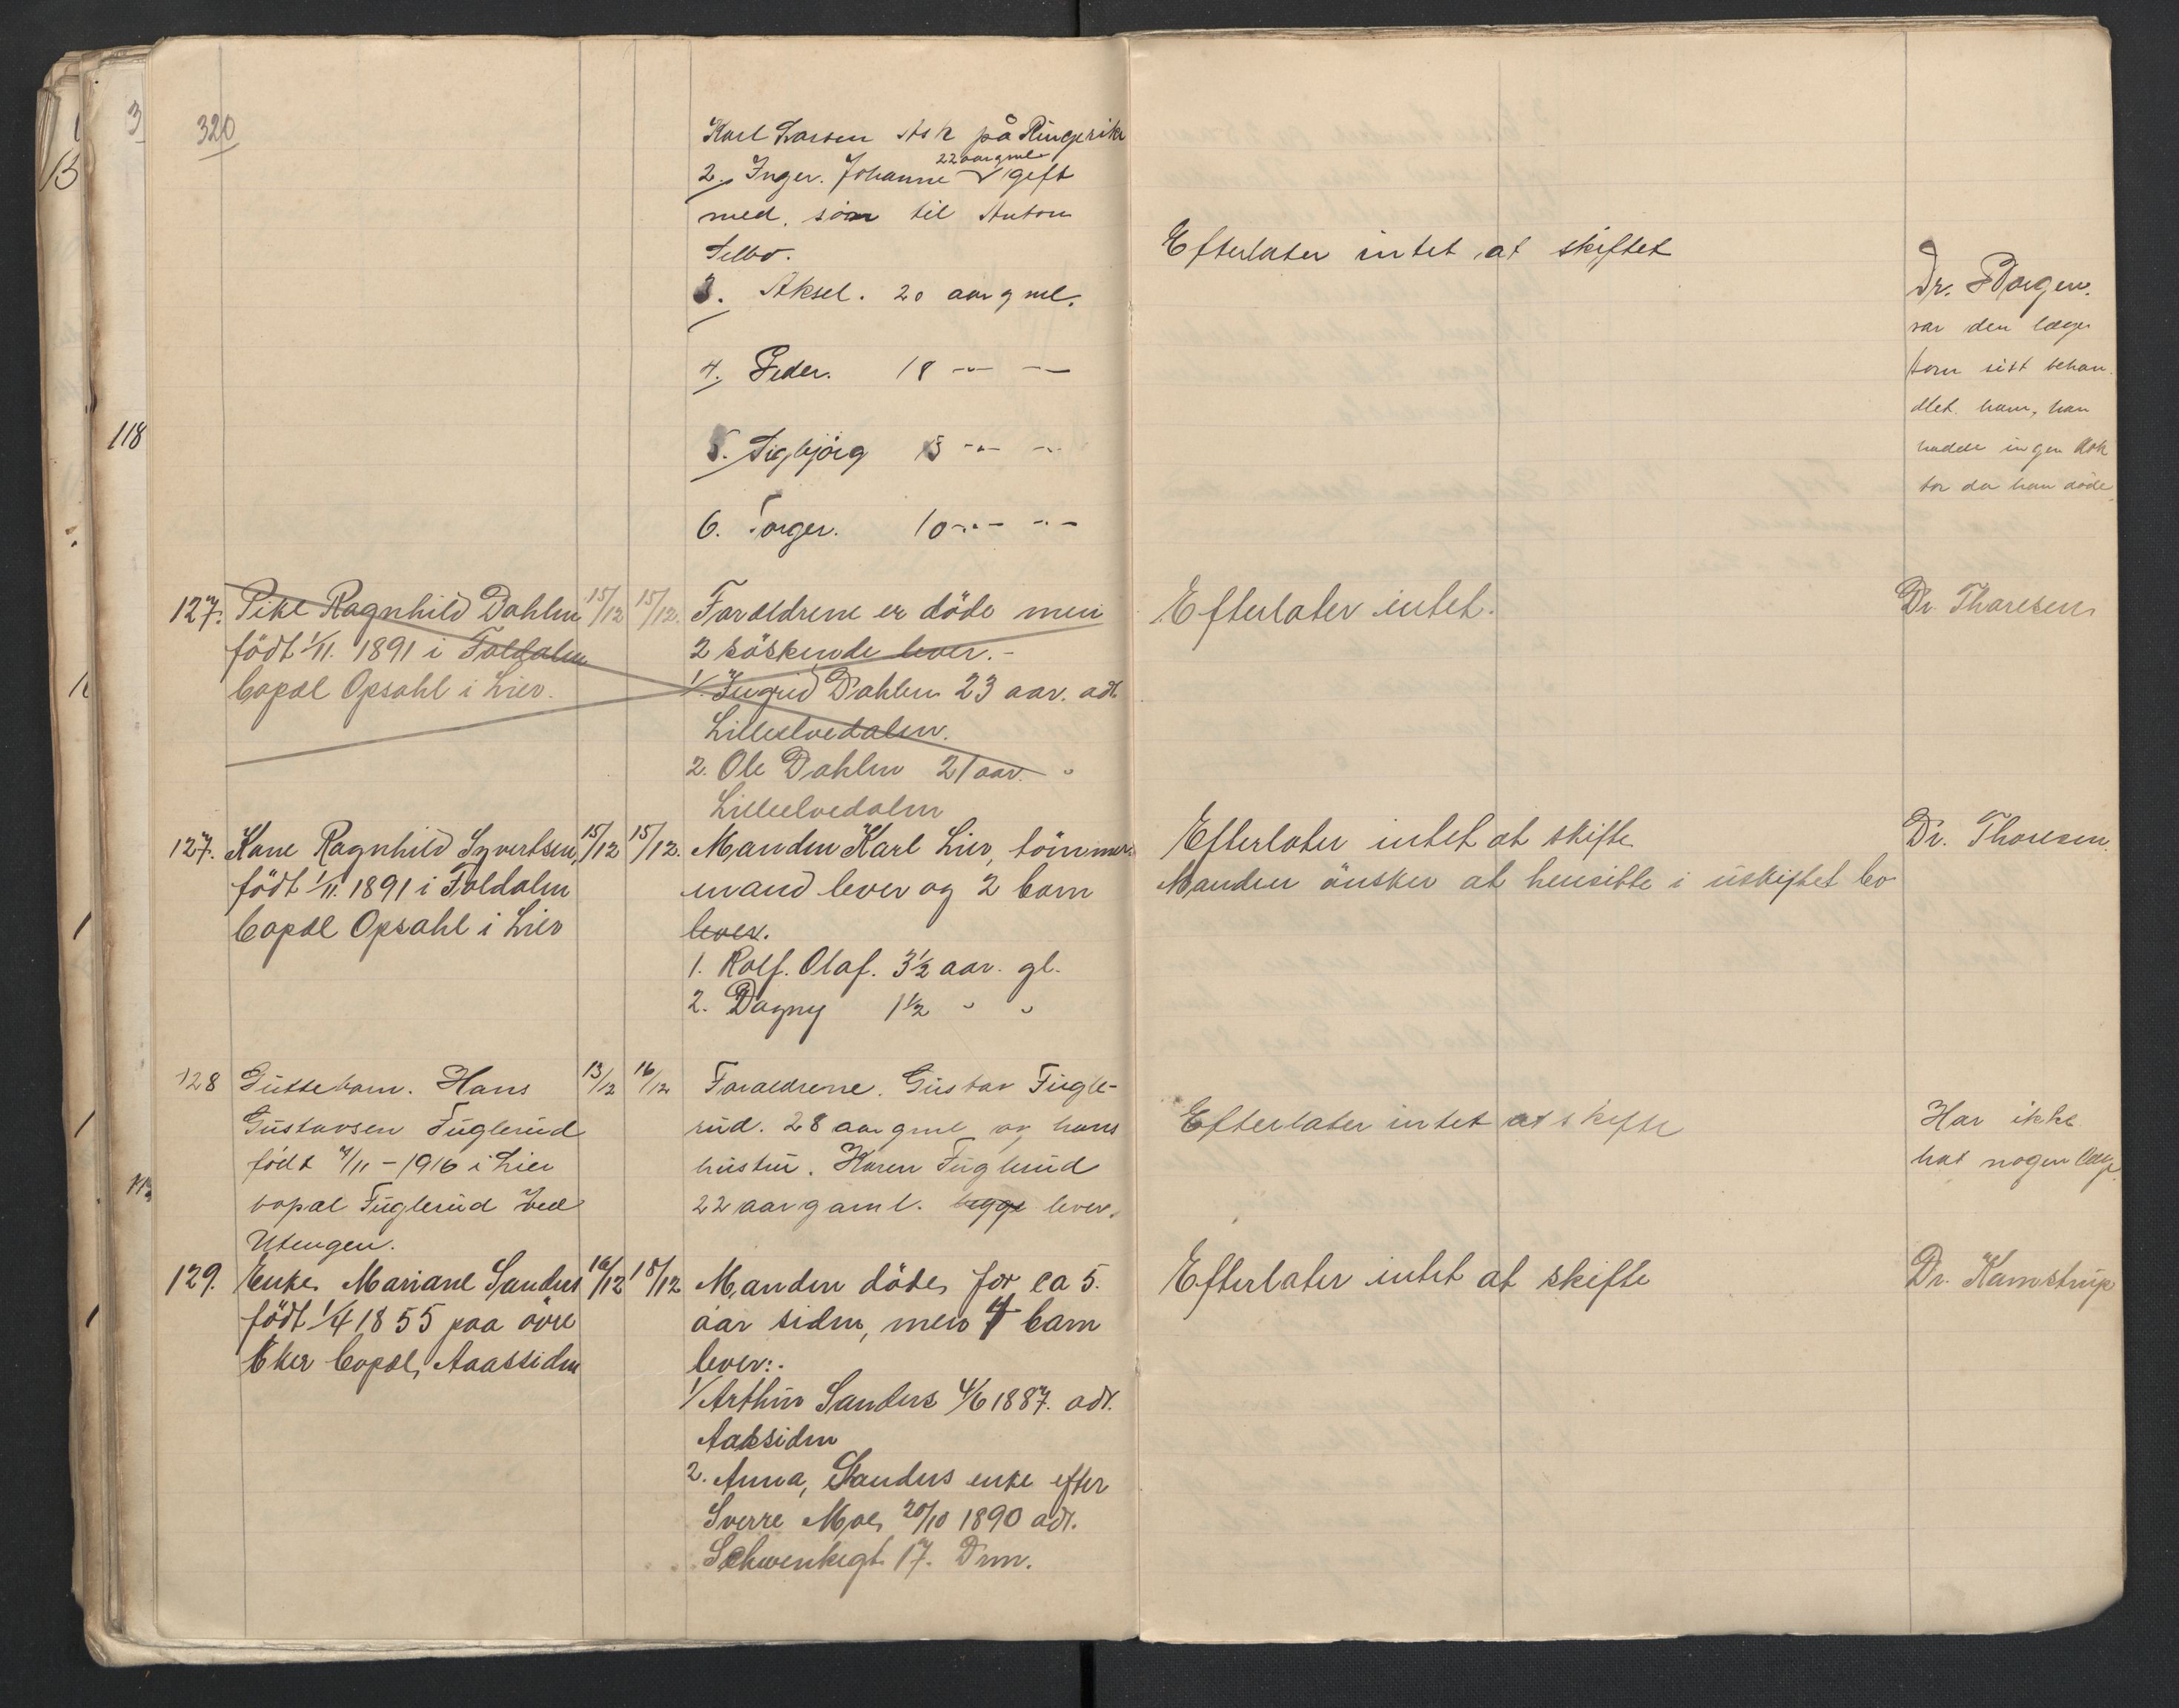 320
Karl Larsen Ask på Ringerike
2. Inger. Johanne 22 aar gml. gift
med. sön til Anton
Selbo.
3. Aksel. 20 aar gml.
4. Peder. 18 -"- -
5. Sigbjörg 13 -"- -"-
6. Torger. 10 -"- -"-
Efterlater intet at skiftet
Dr. Borgen.
var den læge
som sist behan
dlet ham, han
hadde ingen dok
tor da han döde
118
127. Pike Ragnhild Dahlen 15/12 15/12. Foraldrene er döde men
födt 1/11. 1891 i Foldalen 2 söskende lever. -
bopæl Opsahl i Lier. 1. Ingrid Dahlen 23 aar. adr.
Lilleelvedalen.
2. Ole Dahlen 21 aar. "
Lilleelvedalen
Efterlater intet.
Dr. Thoresen
127. Kone Ragnhild Syvertsen, 15/12 15/12. Manden Karl Lier, tömmer-
födt 1/11. 1891 i Foldalen mand lever og 2 barn
bopæl Opsahl i Lier lever.
1. Rolf. Olaf. 3½ aar. gl.
2. Dagny 1½ " "
Efterlater intet at skifte
Manden önsker at hensitte i uskiftet bo
Dr. Thoresen.
128 Guttebarn. Hans 13/12 16/12 Foraldrene. Gustav Fugle-
Gustavsen Fuglerud rud. 28 aar gml og hans
födt 7/11 - 1916 i Lier hustru. Karen Fuglerud
bopæl Fuglerud ved 22 aar gaml. begge lever.
Utengen.
Efterlater intet at skifte
Har ikke
hat nogen læge
129. Enke Mariane Sanders 16/12 18/12 Manden döde for ca 5.
födt 1/4 1855 paa övre aar siden, men 4 barn
Eker bopæl, Aassiden lever:.
1/ Arthur Sanders 4/6 1887. adr.
Aassiden
2. Anna, Sanders enke efter
Sverre Moe, 20/10 1890 adr.
Schwenkegt 17. Drm.
Efterlater intet at skifte
Dr. Kamstrup